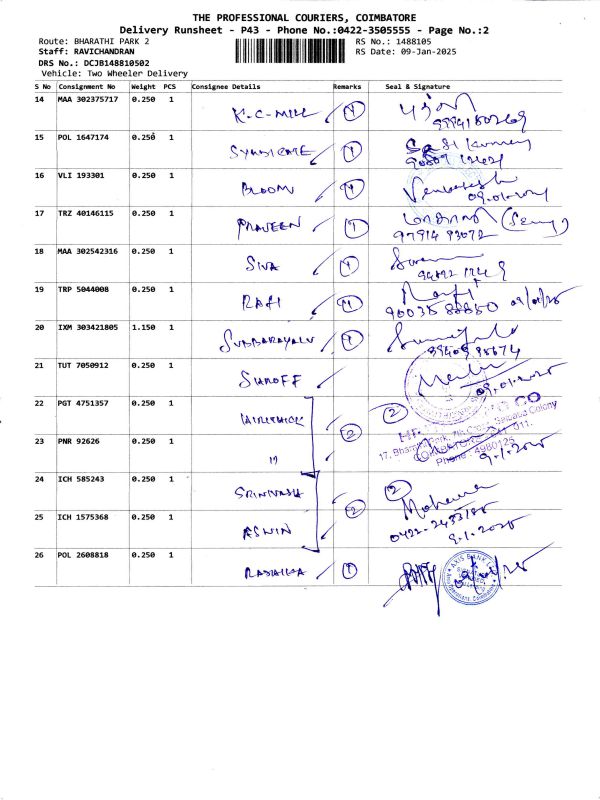 THE PROFESSIONAL COURIERS, COIMBATORE
Delivery Runsheet - P43 - Phone No.:0422-3505555 - Page No.:2
Route: BHARATHI PARK 2
RS No.: 1488105
Staff: RAVICHANDRAN
RS Date: 09-Jan-2025
DRS No.: DCJB148810502
Vehicle: Two Wheeler Delivery
S No Consignment No Weight PCS Consignee Details Remarks Seal & Signature
14 MAA 302375717 0.250 1 K-C-MILL 1
15 POL 1647174 0.250 1 SYNDICATE 1
16 VLI 193301 0.250 1 BLOOM 1
09.01.2025
17 TRZ 40146115 0.250 1 PRAVEEN 1
97914 93072
18 MAA 302542316 0.250 1 SIVA 1
19 TRP 5044008 0.250 1 RAFI 1
90035 88850 09/01/25
20 IXM 303421805 1.150 1 SUBBARAYALU 1
21 TUT 7050912 0.250 1 SHROFF
09.01.2025
22 PGT 4751357 0.250 1 2
& CO
23 PNR 92626 0.250 1 " 2
Saibaba Colony
Phone : 4980125
9-1-2025
24 ICH 585243 0.250 1 SRINIVASA 2
25 ICH 1575368 0.250 1 ASWIN 2
9-1-2025
26 POL 2608818 0.250 1 1
AXIS BANK